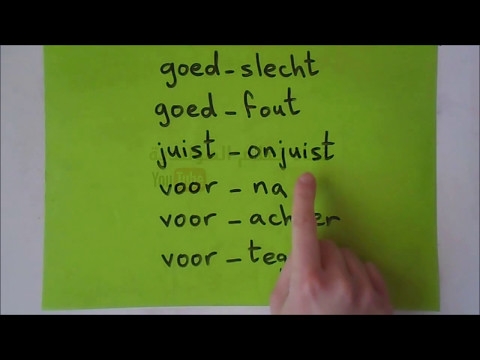 goed - slecht
goed - fout
juist - onjuist
voor - na
voor -
voor -
YouTube